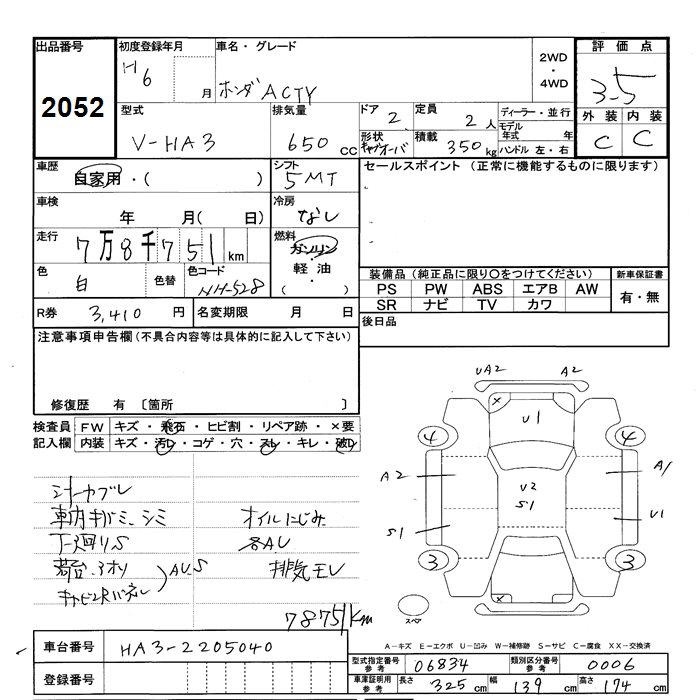 出品番号
2052
初度登録年月
H6
月
車名・グレード
ホンダ ACTY
2WD
・
4WD
評価点
3.5
外装 内装
C C
型式
V-HA3
排気量
650 CC
ドア
2
定員
2 人
形状
積載
350 kg
ディーラー・並行
モデル
年式 年
ハンドル 左・右
車歴
自家用・( )
シフト
5MT
セールスポイント (正常に機能するものに限ります)
車検
年 月( 日)
冷房
なし
走行
7万8千751 km
燃料
ガソリン
・
軽油
・
( )
色
白
色替
色コード
NH-528
装備品 (純正品に限り○をつけてください)
PS PW ABS エアB AW
SR ナビ TV カワ
新車保証書
有・無
R券
3,410 円
名変期限 月 日
後日品
注意事項申告欄 (不具合内容等は具体的に記入して下さい)
修復歴 有 〔箇所 〕
検査員
記入欄
FW キズ・飛石・ヒビ割・リペア跡・×要
内装 キズ・汚レ・コゲ・穴・スレ・キレ・破レ
車内キバミ、シミ
下廻りS
オイルにじみ
各AU
排気モレ
AU.S
78751km
UA2
A2
U1
4
4
A2
A1
U2
S1
S1
U1
3
3
スペア
A-キズ E-エクボ U-凹み W-補修跡 S-サビ C-腐食 XX-交換済
車台番号
HA3-2205040
登録番号
型式指定番号
参考
06834
類別区分番号
参考
0006
車庫証明用
参考
長さ
325 cm
幅
139 cm
高さ
174 cm